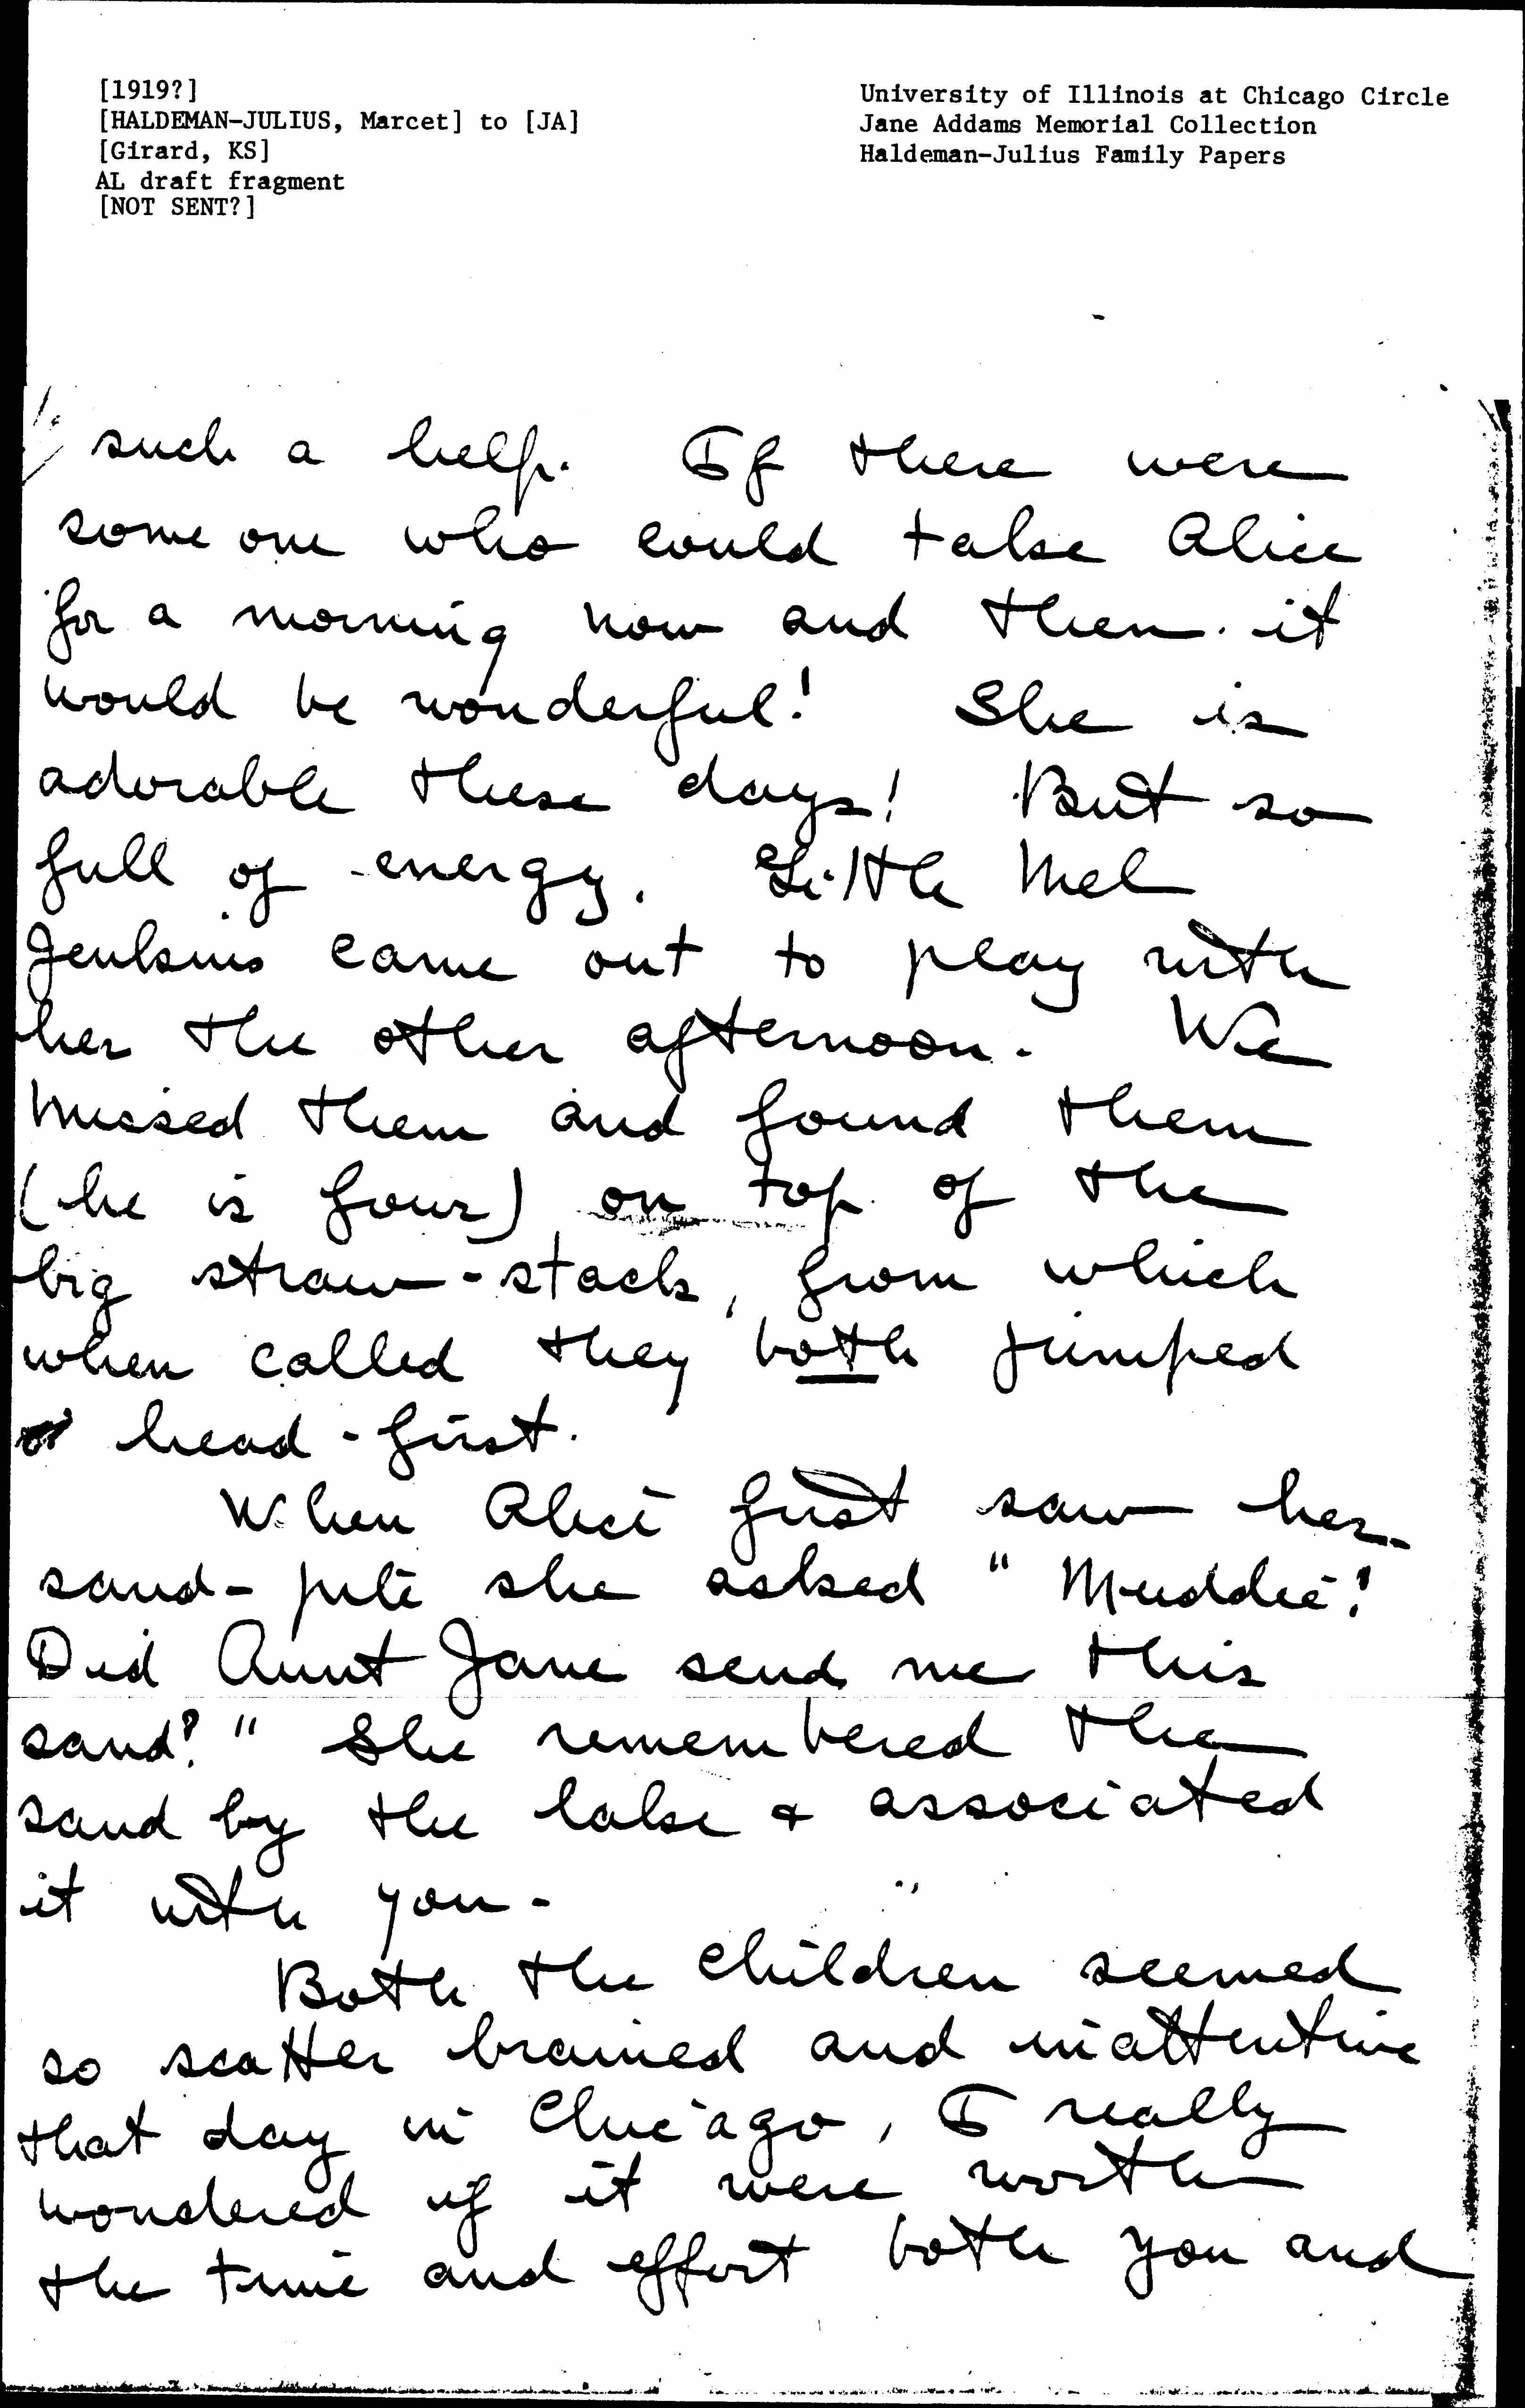 [1919?]
[HALDEMAN-JULIUS, Marcet] to [JA]
[Girard, KS]
AL draft fragment
[NOT SENT?]
University of Illinois at Chicago Circle
Jane Addams Memorial Collection
Haldeman-Julius Family Papers
such a help. If there were
some one who could take Alice
for a morning now and then. it
would be wonderful! She is
adorable these days! But so
full of energy. Little Mel
Jenkins came out to play with
her the other afternoon. We
missed them and found them
(he is four) on top of the
big straw-stack, from which
when called they both jumped
head-first.
When Alice first saw her
sand-pile she asked "Muddie!
Did Aunt Jane send me this
sand?" She remembered the
sand by the lake & associated
it with you-
Both the children seemed
so scatter brained and inattentive
that day in Chicago, I really
wondered if it were worth
the time and effort both you and